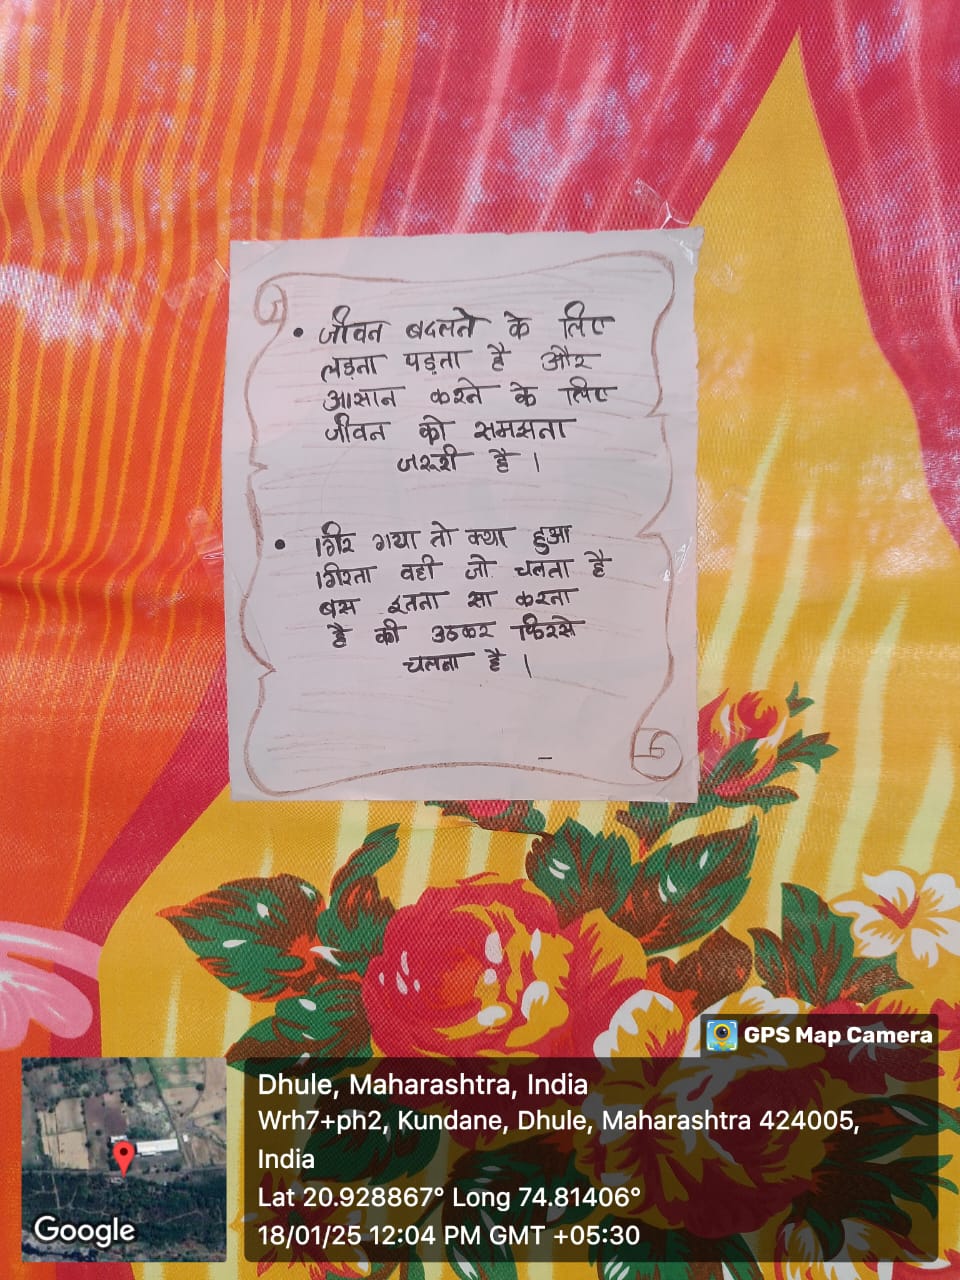 • जीवन बदलने के लिए
लड़ना पड़ता है और
आसान करने के लिए
जीवन को समझना
जरूरी है ।
• गिर गया तो क्या हुआ
गिरता वही जो चलता है
बस इतना सा करना
है की उठकर फिरसे
चलना है ।
GPS Map Camera
Dhule, Maharashtra, India
Wrh7+ph2, Kundane, Dhule, Maharashtra 424005,
India
Lat 20.928867° Long 74.81406°
18/01/25 12:04 PM GMT +05:30
Google